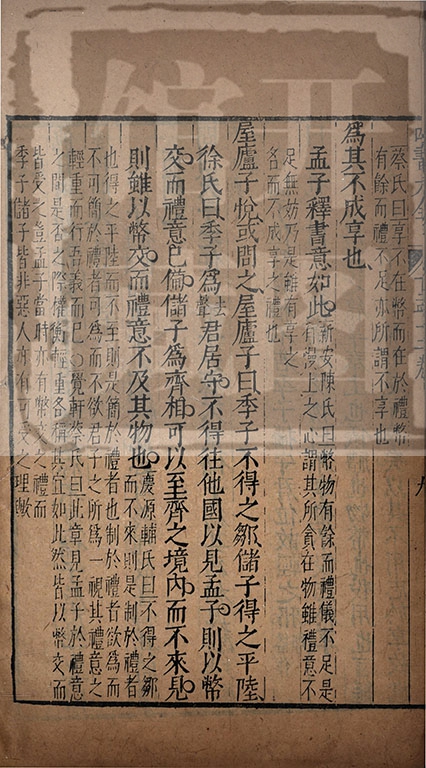 蔡氏曰享不在幣而在於禮幣
有餘而禮不足亦所謂不享也
為其不成享也
孟子釋書意如此新安陳氏曰幣物有餘而禮儀不足是
有慢上之心謂其所食在物雖禮意不
足無妨乃是雖有享之
名而不成享之禮也
屋廬子悅或問之屋廬子曰季子不得之鄒儲子得之平陸
徐氏曰季子為去聲君居守不得往他國以見孟子則以幣
交而禮意已備儲子為齊相可以至齊之境內而不來見
則雖以幣交而禮意不及其物也慶源輔氏曰不得之鄒
而不來則是制於禮者
也得之平陸而不至則是簡於禮者也制於禮者欲為而
不可簡於禮者可為而不欲君子之所為一視其禮意之
輕重而行吾義而已○覺軒蔡氏曰此章見孟子於禮意
之間是否之際權衡輕重各稱其宜如此然皆以幣交而
皆受之豈孟子當時亦有幣交之禮而
季子儲子皆非惡人亦有可受之理歟